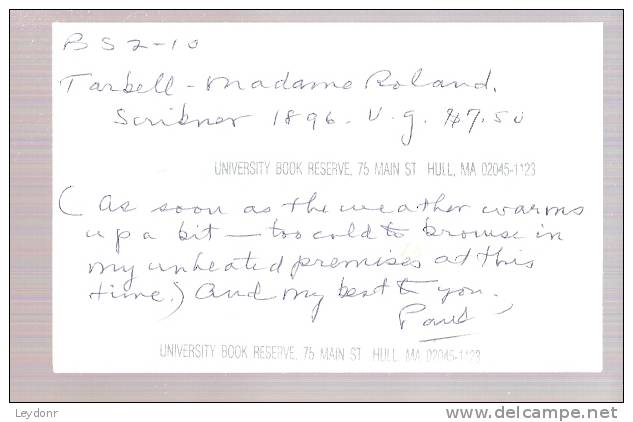 B S 2-10
Tarbell - Madame Roland.
Scribner 1896. V.g. $7.50
UNIVERSITY BOOK RESERVE, 75 MAIN ST HULL, MA 02045-1123
(As soon as the weather warms
up a bit — too cold to browse in
my unheated premises at this
time.) And my best to you.
Paul
UNIVERSITY BOOK RESERVE, 75 MAIN ST HULL, MA 02045-1123
Leydonr
www.delcampe.net